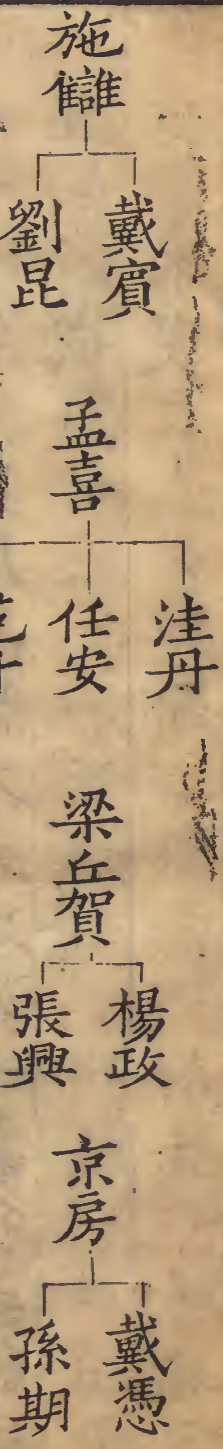 施讎
戴賓
劉昆
孟喜
洼丹
任安
梁丘賀
楊政
張興
京房
戴憑
孫期